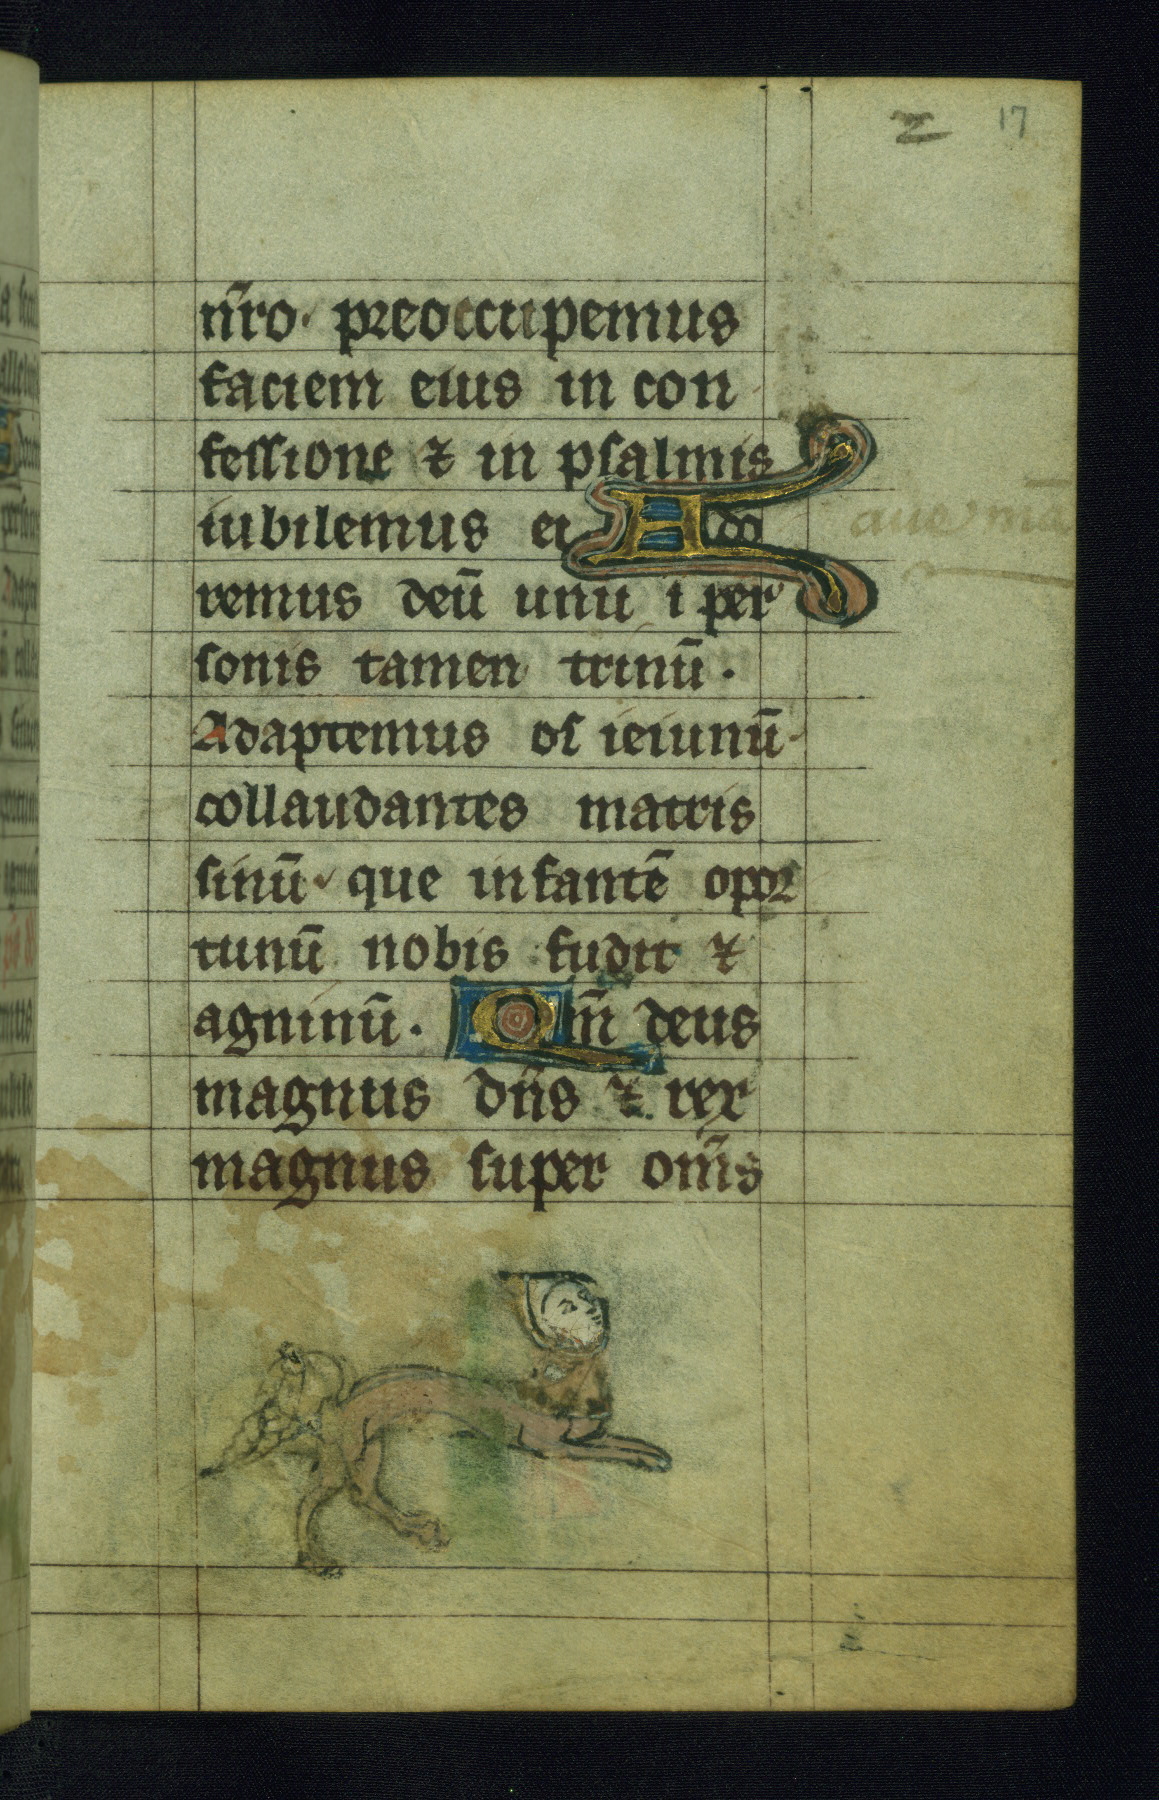 z 17
nr̄o preoccupemus
faciem eius in con
fessione ⁊ in psalmis
iubilemus ei Ado
aue mā
remus deū unū i per
sonis tamen trinū.
Adaptemus os ieiunū
collaudantes matris
sinū que infantē opor
tunū nobis fudit ⁊
agninū. Qm̄ deus
magnus dn̄s ⁊ rex
magnus super om̄s